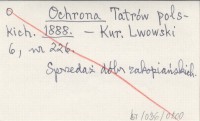 O Ochrona Tatrów pols-
kich. 1888. – Kur. Lwowski
6, nr 226.
Sprzedaż dóbr zakopiańskich.